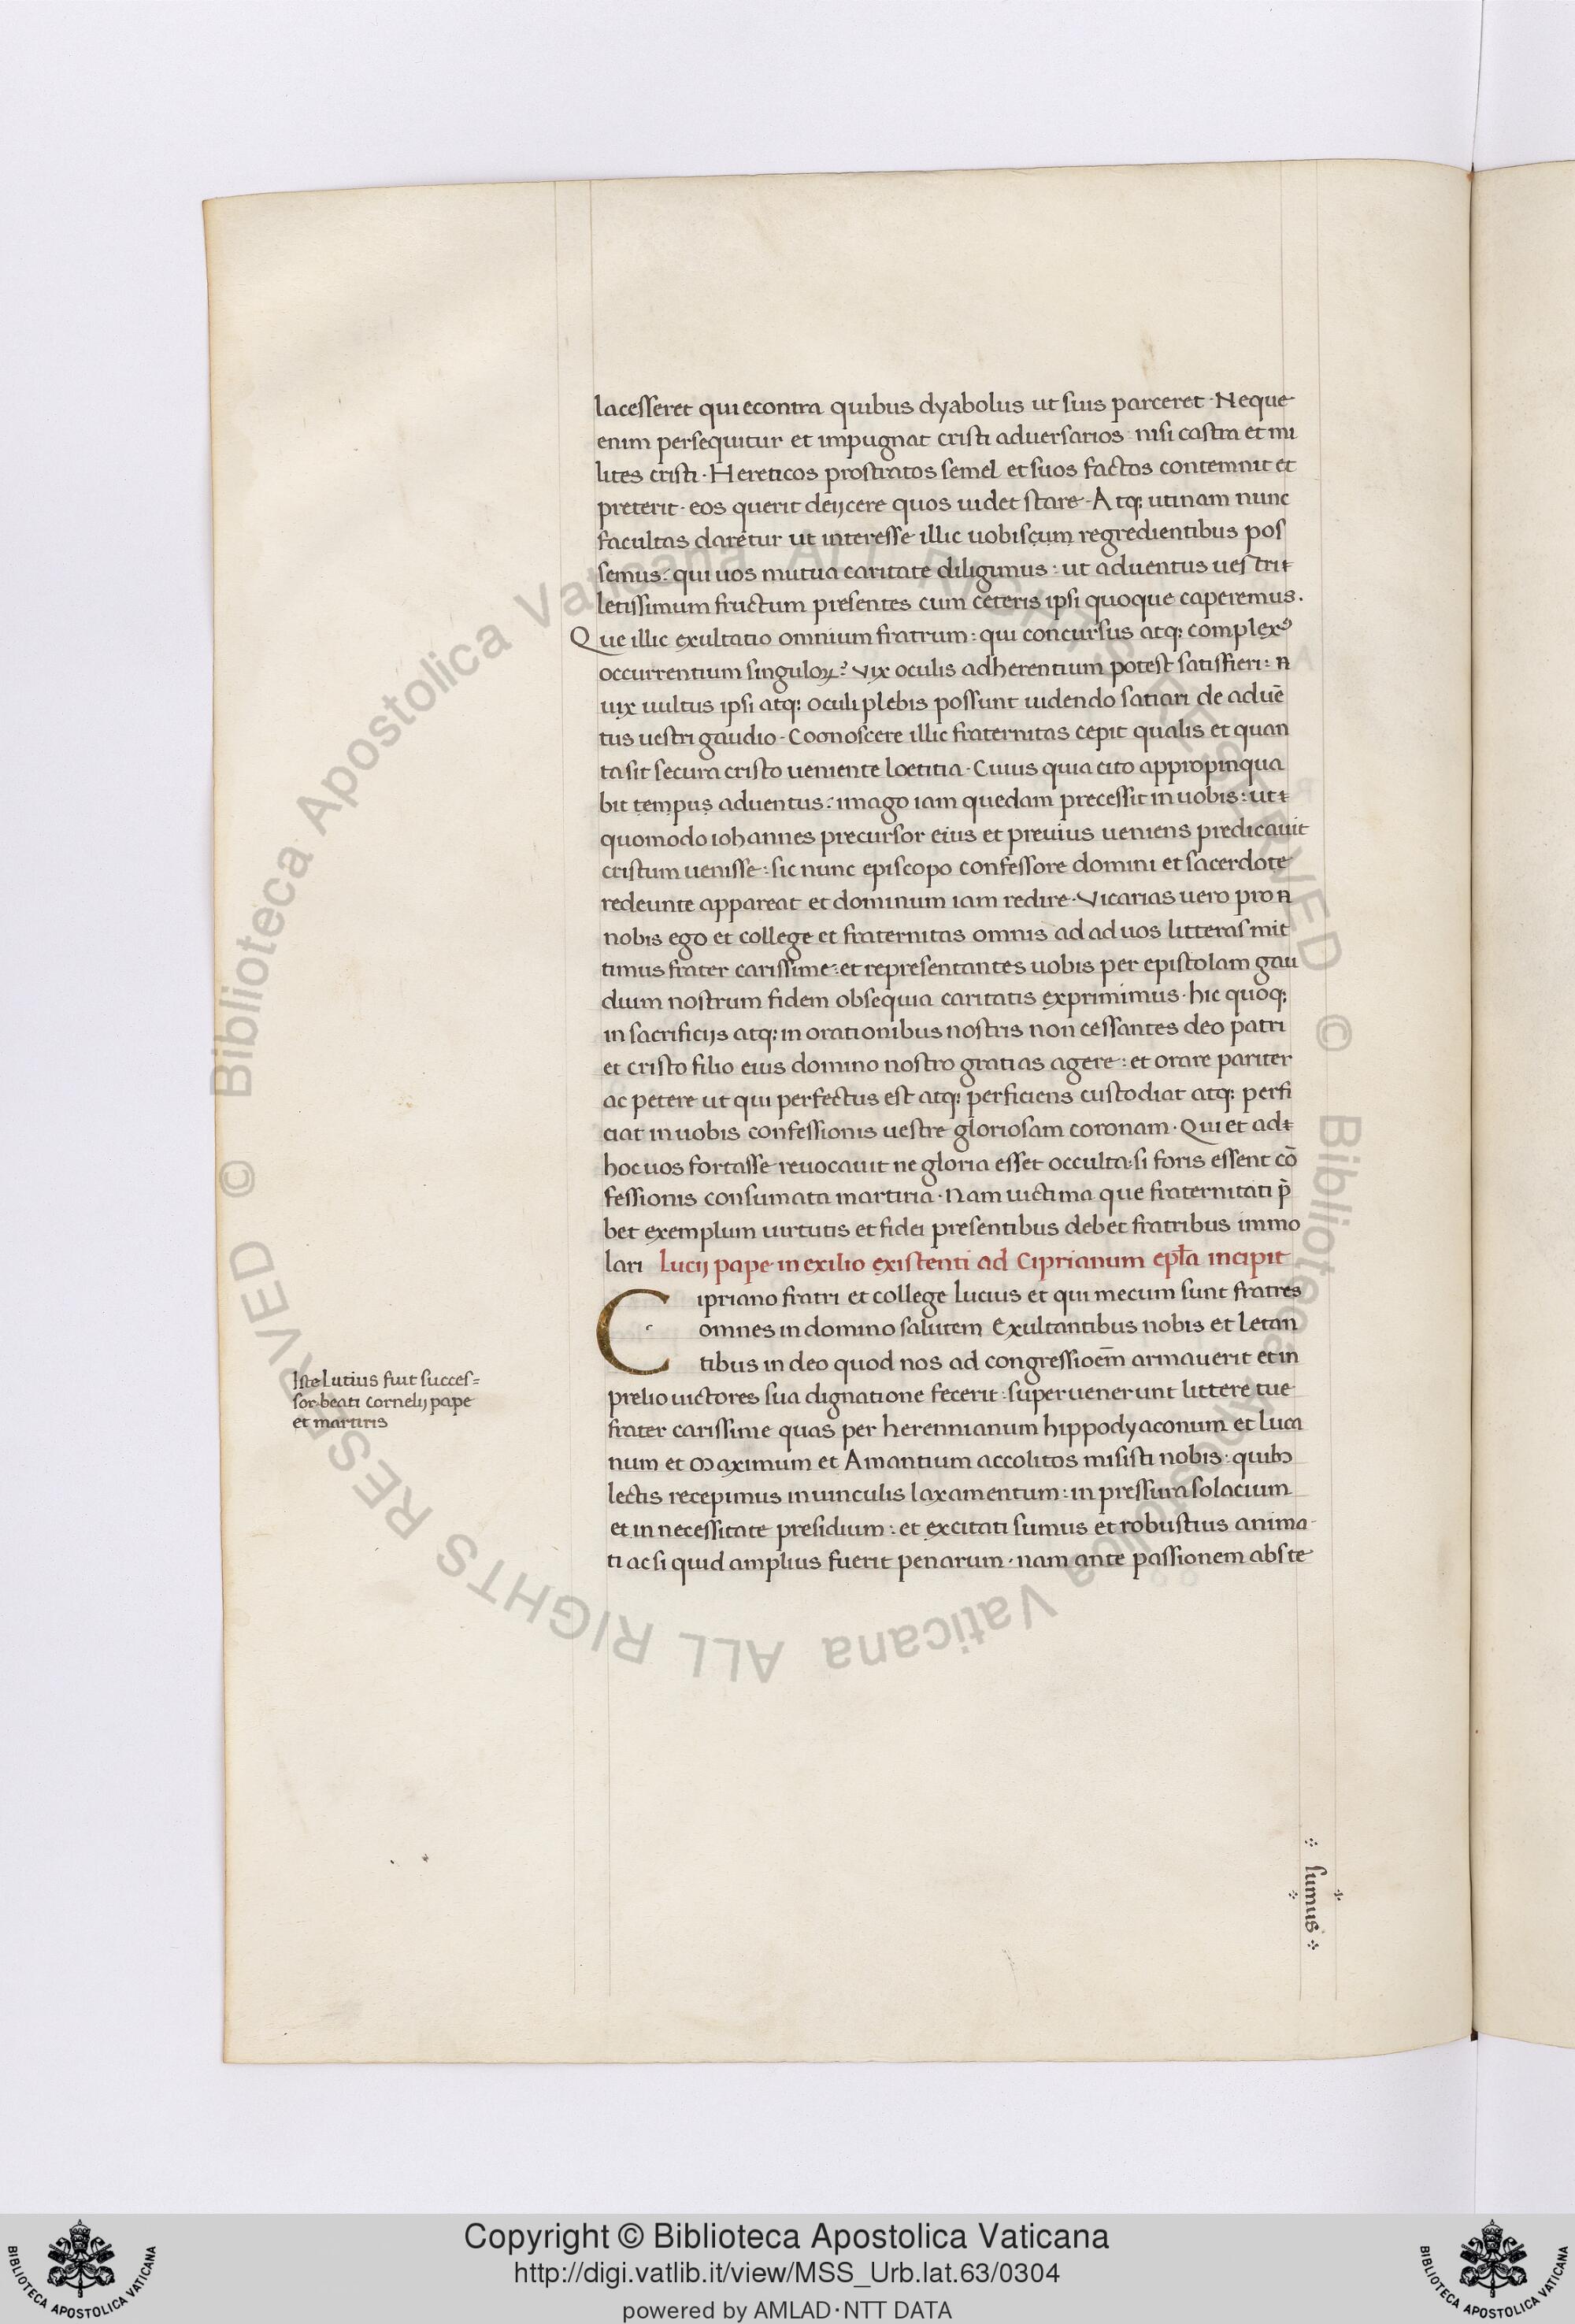 lacesseret qui econtra quibus dyabolus ut suis parceret · Neque
enim persequitur et impugnat cristi adversarios nisi castra et mi
lites cristi · Hereticos prostratos semel et suos factos contemnit et
preterit · eos querit deijcere quos uidet stare · Atq; utinam nunc
facultas daretur ut interesse illic uobiscum regredientibus pos
semus : qui uos mutua caritate diligimus : ut aduentus uestri
letissimum fructum presentes cum ceteris ipsi quoque caperemus .
Que illic exultatio omnium fratrum : qui concursus atq; complexꝰ
occurrentium singuloꝝ ? Vix oculis adherentium potest satisfieri :
uix uultus ipsi atq; oculi plebis possunt uidendo satiari de aduē
tus uestri gaudio · Cognoscere illic fraternitas cepit qualis et quan
ta sit secura cristo ueniente loetitia · Cuius quia cito appropinqua
bit tempus aduentus : imago iam quedam precessit in uobis : ut
quomodo iohannes precursor eius et preuius ueniens predicauit
cristum uenisse : sic nunc episcopo confessore domini et sacerdote
redeunte appareat et dominum iam redire · Vicarias uero pro
nobis ego et college et fraternitas omnis ad ad uos litteras mit
timus frater carissime : et representantes uobis per epistolam gau
dium nostrum fidem obsequia caritatis exprimimus · hic quoq;
in sacrificijs atq; in orationibus nostris non cessantes deo patri
et cristo filio eius domino nostro gratias agere : et orare pariter
ac petere ut qui perfectus est atq; perficiens custodiat atq; perfi
ciat in uobis confessionis uestre gloriosam coronam · Qui et ad
hoc uos fortasse reuocauit ne gloria esset occulta · si foris essent cō
fessionis consumata martiria · Nam uictima que fraternitati p̄
bet exemplum uirtutis et fidei presentibus debet fratribus immo
lari Lucij pape in exilio existenti ad Ciprianum epl̄a incipit
Cipriano fratri et college lucius et qui mecum sunt fratres
omnes in domino salutem Exultantibus nobis et letan
tibus in deo quod nos ad congressioēm armauerit et in
prelio uictores sua dignatione fecerit : superuenerunt littere tue
frater carissime quas per herennianum hippodyaconum et luca
num et Maximum et Amantium accolitos misisti nobis : quibꝫ
lectis recepimus in uinculis laxamentum : in pressura solacium
et in necessitate presidium : et excitati sumus et robustius anima
ti ac si quid amplius fuerit penarum · nam ante passionem abs te
Iste Lutius fuit succes=
sor beati Cornelij pape
et martiris
sumus
© Biblioteca Apostolica Vaticana ALL RIGHTS RESERVED © Biblioteca Apostolica Vaticana ALL RIGHTS RESERVED
Copyright © Biblioteca Apostolica Vaticana
http://digi.vatlib.it/view/MSS_Urb.lat.63/0304
powered by AMLAD·NTT DATA
BIBLIOTECA APOSTOLICA VATICANA
BIBLIOTECA APOSTOLICA VATICANA